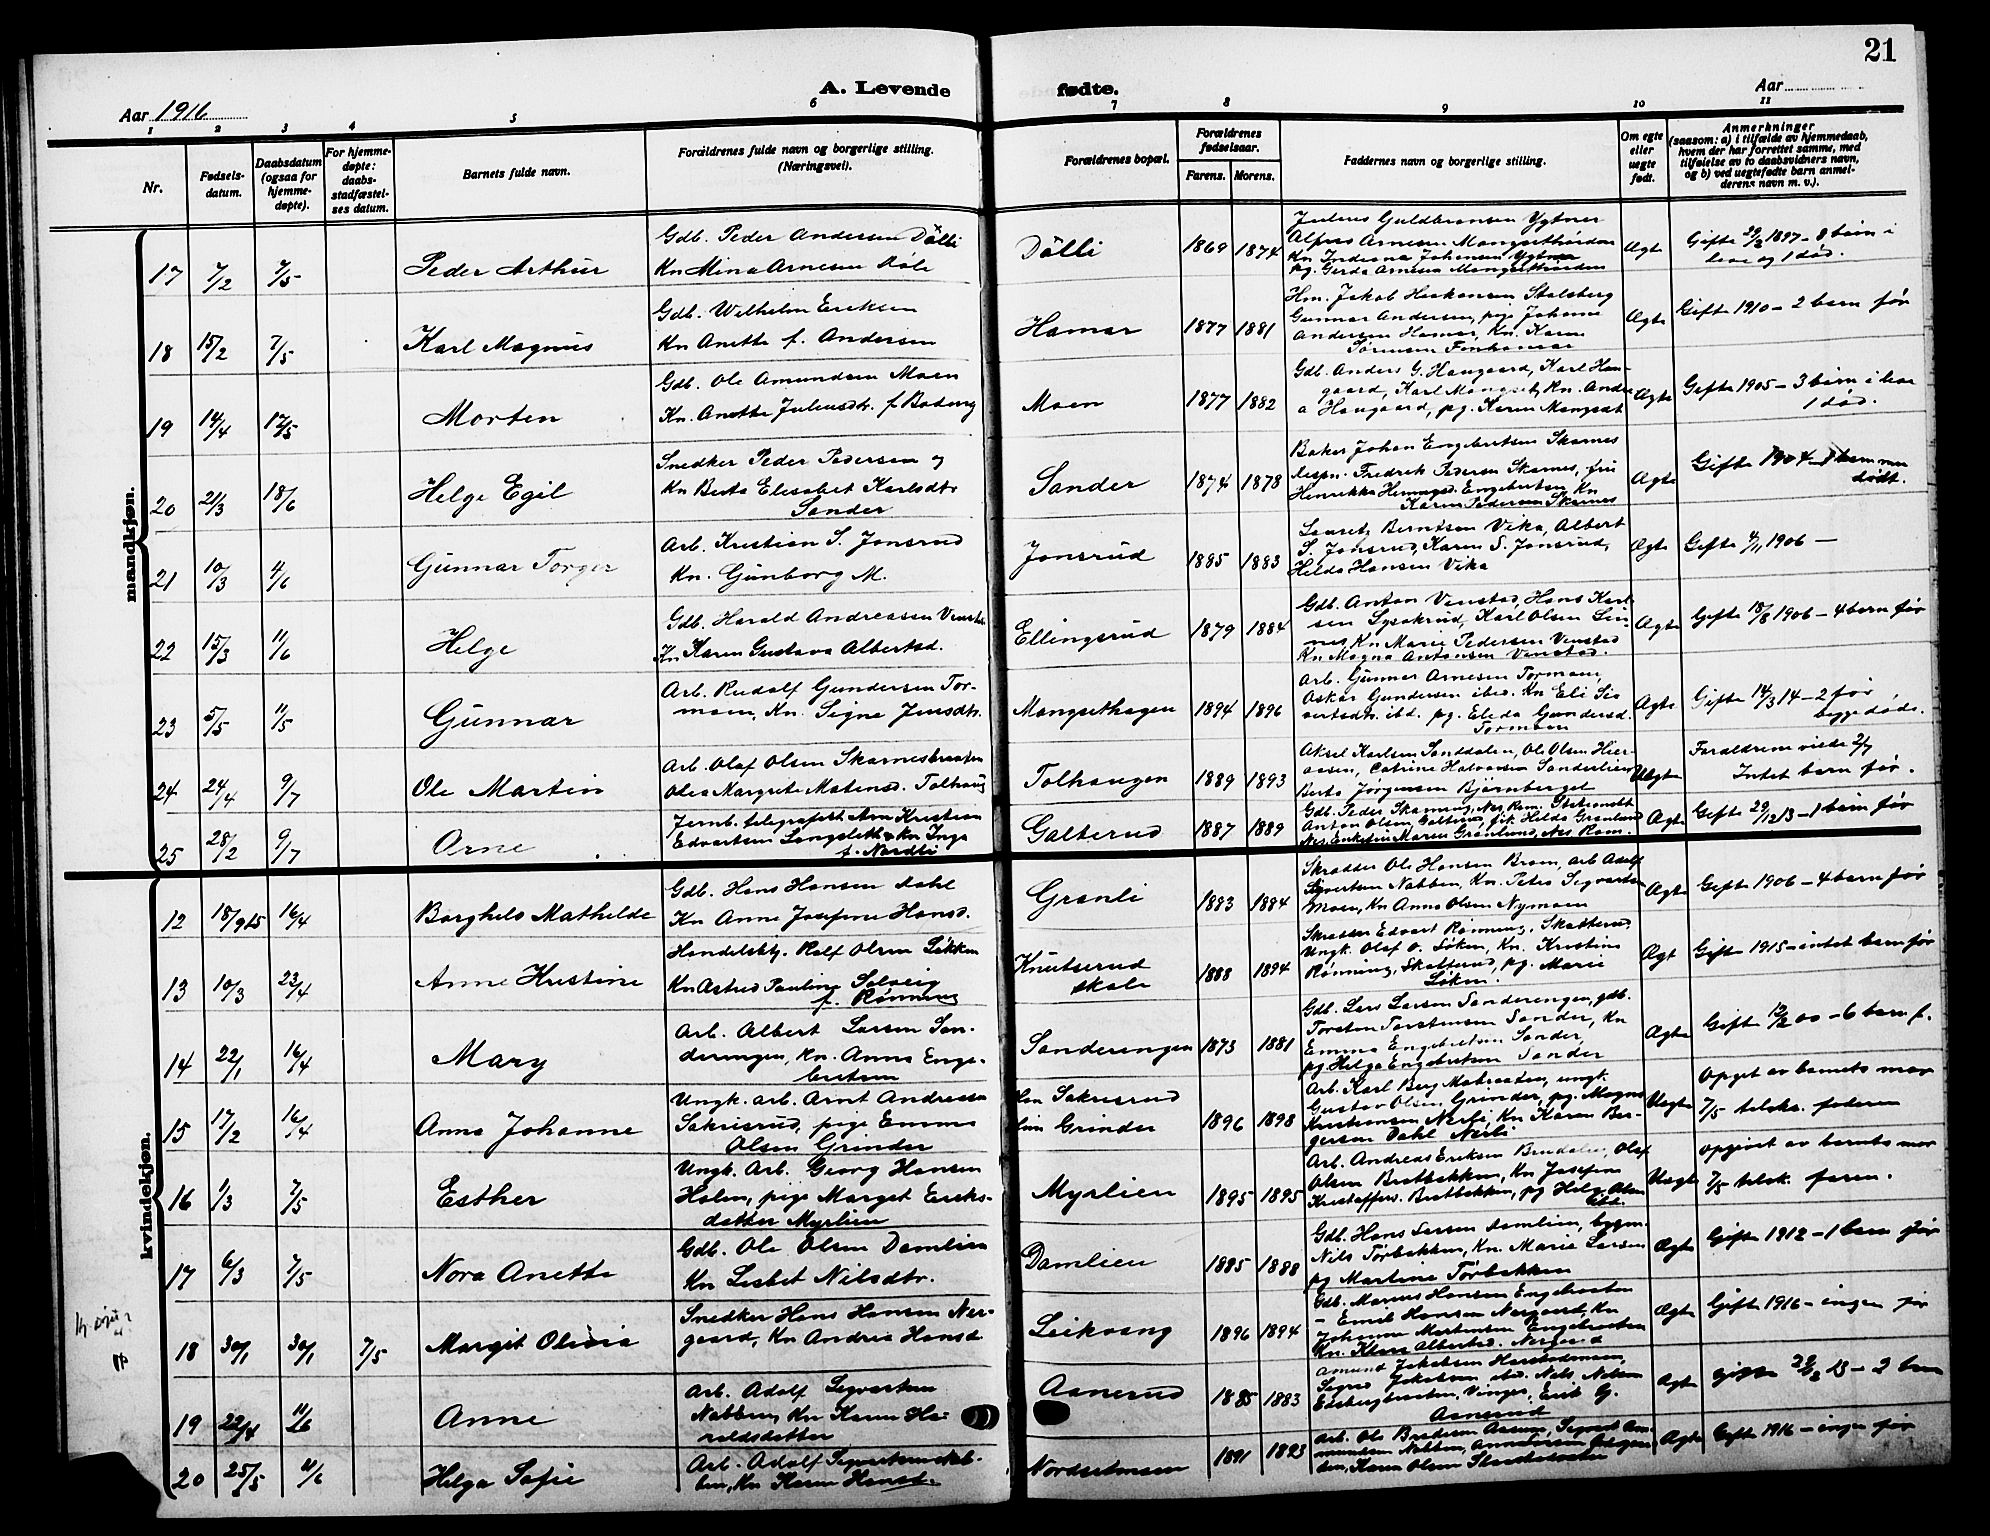 21
A. Levende fødte.
Aar 1916
Aar
1 2 3 4 5 6 7 8 9 10 11
Nr.
Fødsels-
datum.
Daabsdatum
(ogsaa for
hjemme-
døpte).
For hjemme-
døpte:
daabs-
stadfæstel-
ses datum.
Barnets fulde navn.
Forældrenes fulde navn og borgerlige stilling.
(Næringsvei).
Forældrenes bopæl.
Forældrenes
fødselsaar.
Farens. Morens.
Faddernes navn og borgerlige stilling.
Om egte
eller
uegte
født.
Anmerkninger
(saasom: a) i tilfælde av hjemmedaab,
hvem der har forrettet samme, med
tilføielse av to daabsvidners navn,
og b) ved uegtefødte barn anmel-
derens navn m. v.).
mandkjøn.
17 7/2 7/5 Peder Arthur
Gdb. Peder Andersen Dölli
Kn Mina Arnesen
Dölli 1869 1874
Julius Guldbransen
Alfred Arnesen
Kn Indiana Johansen
pg. Gerda Arnesen
Ægte
Gifte 29/2 1897 - 8 barn i
live og 1 død.
18 15/2 7/5 Karl Magnus
Gdb. Wilhelm Eriksen
Kn Anette f. Andersen
Hamar 1877 1881
Hm. Jakob Haakonsen Stalsberg
Gunnar Andersen, pige Johanne
Andersen Hamar, Kn. Karen
Sørensen
Ægte
Gifte 1910 - 2 barn før
19 14/4 Morten
Gdb. Ole Amundsen Moen
Kn. Anette Juliusdtr. f.
Moen 1877 1882
Gdb. Anders G. Haugaard, Karl Hau-
gaard, Karl Mangset, Kn. Andre
a Haugaard, pg. Karen Mangset
Ægte
Gifte 1905 - 3 barn i live
1 død.
20 21/3 18/6 Helge Egil
Snedker Peder Pedersen og
Kn Berta Elisabet Karlsdtr
Sander
Sander 1874 1878
Baker Johan Engebretsen Skarnes
Fredrik Pedersen Skarnes, fru
Henrikke Engebretsen Kn
Karen Pedersen Skarnes
Ægte
Gifte 1904 - 1 barn
dødt.
21 10/3 4/6 Gunnar Torger
Arb. Kristian S. Jonsrud
Kn. Gunborg M.
Jonsrud 1885 1883
Lauretz Berntsen Vika, Albert
S. Jonsrud, Karen S. Jonsrud,
Hilda Hansen Vika
Ægte
Gifte 1906 -
22 15/3 11/6 Helge
Gdb. Harald Andreassen
Kn Karen Gustava Albertsd.
Ellingsrud 1879 1884
Gdb. Anton Venstad, Hans Karl-
sen Karl Olsen
Kn Marie Pedersen Venstad
Kn Magna Antonsen Venstad.
Ægte
Gifte 18/8 1906 - 4 barn før
23 5/5 11/5 Gunnar
Arb. Rudolf Gundersen Tor-
moen, Kn. Signe Jensdtr.
Mangsethagen 1894 1896
Arb. Gunnar Arnesen Tormoen,
Oskar Gundersen ibd. Kn Eli Si-
vertsdtr. ibd. pg. Elida Gundersd.
Tormoen
Ægte
Gifte 14/3 14 - 2 før
begge døde.
24 24/4 9/7 Ole Martin
Arb. Olaf Olsen Skarnesbraaten
Margrete Tolhaug
Tolhaugen 1889 1893
Aksel Karlsen Sanddalen, Ole Olsen
Catrine Halvorsen Sanderlien
Berta Jørgensen Bjørnberget
Uægte
Forældrene viede 2/7
Intet barn før.
25 28/2 9/7 Arne
Jernb. telegrafist Arne Kristian
Edvartsen Langslett & Kn Inga
f. Nordli
Galterud 1887 1889
Gdb. Peder Nes, Rom.
Anton Olsen Galterud, Hilda Grønlund
Maren Grønlund, Nes Rom.
Ægte
Gifte 29/12 13 - 1 barn før
kvindekjøn.
12 18/9 15 16/4 Borghild Mathilde
Gdb. Hans Hansen Dahl
Kn Anne Josefine Hansd.
Granli 1883 1884
Skrædder Ole Hansen Bram, arb Adolf
Sigvartsen Nabben, Kn. Petra Sigvartsen
Moen, Kn Anna Olsen Nymoen
Ægte
Gifte 1906 - 4 barn før
13 10/3 23/4 Anne Kristine
Handelsbtj. Ralf Olsen Løkken
Kn Astrid Pauline Solveig
f. Rønning
Knutserud
skole 1888 1894
Skrædder Edvart Rønning, Skatterud,
Ungk. Olaf O. Løken, Kn. Kristine
Rønning, Skatterud, pg. Marie
Løken.
Ægt
Gift 1915 - intet barn før
14 22/1 16/4 Mary
Arb. Albert Larsen San-
derengen, Kn. Anna Enge-
bretsen
Sanderengen 1873 1881
Gdb. Lars Larsen Sanderengen, gdb.
Torsten Torstensen Sander, Kn
Emma Engebretsen Sander,
pg. Helga Engebretsen Sander
Ægte
Gifte 00 - 6 barn f.
15 17/2 16/4 Anna Johanne
Ungk. arb. Arnt Andreasen
Sakrisrud, pige Emma
Olsen Grinder
Han Sakrisrud
Hun Grinder 1896 1898
Arb. Karl Berg ungk.
Gustav Olsen, Grinder, pg. Magna
Kristiansen Nerli, Kn Karen Ber-
gersen Dahl Nerli.
Uægte
Opget av barnets mor
7/5 tilsk. faderen
16 1/3 7/5 Esther
Ungk. Arb. Georg Hansen
Holm, pige Marget Eriks-
datter Myrlien
Myrlien 1895 1895
Arb. Andreas Eriksen Olaf
Olsen Brotbakken, Kn Josefine
Kristoffers. Brotbakken, pg Helga Olsen
ibd.
Uægt
opgivet av barnets mor
7/5 tilsk. faren.
17 6/3 7/5 Nora Anette
Gdb. Ole Olsen Damlien
Kn Lisbet Nilsdtr.
Damlien 1885 1888
Gdb. Hans Larsen Damlien,
Nils Torbakken, Kn. Marie Larsen
pg Martine Torbakken
Ægte
Gifte 1912 - 1 barn før
18 30/1 30/1 7/5 Margit Olivia
Snedker Hans Hansen Ner-
gaard, Kn Andrea Hansd
Leikvang 1896 1894
Gdb. Marius Hansen Engebraaten
- Emil Hansen Nergaard, Kn
Johanne Martinsen Engebraaten
Kn. Klara Albertsd. Nergaard
Ægte
Gifte 1916 - ingen før
19 22/4 11/6 Anne
Arb. Adolf Sigvartsen
Nabben, Kn Karen Ha-
raldsdatter
Aanerud 1885 1883
Amund Jakobsen
Sigrid Jakobsen ibd. Nils Nilsen
Vinger, Erik G.
Aanerud
Ægte
Gifte 13 - 2 barn
20 25/5 11/6 Helga Sofie
Arb. Adolf Sigvartsen Nab-
ben, Kn Karen Hansd.
Nordsetmoen 1891 1893
Arb. Ole
Nabben,
Karen Olsen
Ægte
Gifte 1916 - ingen før